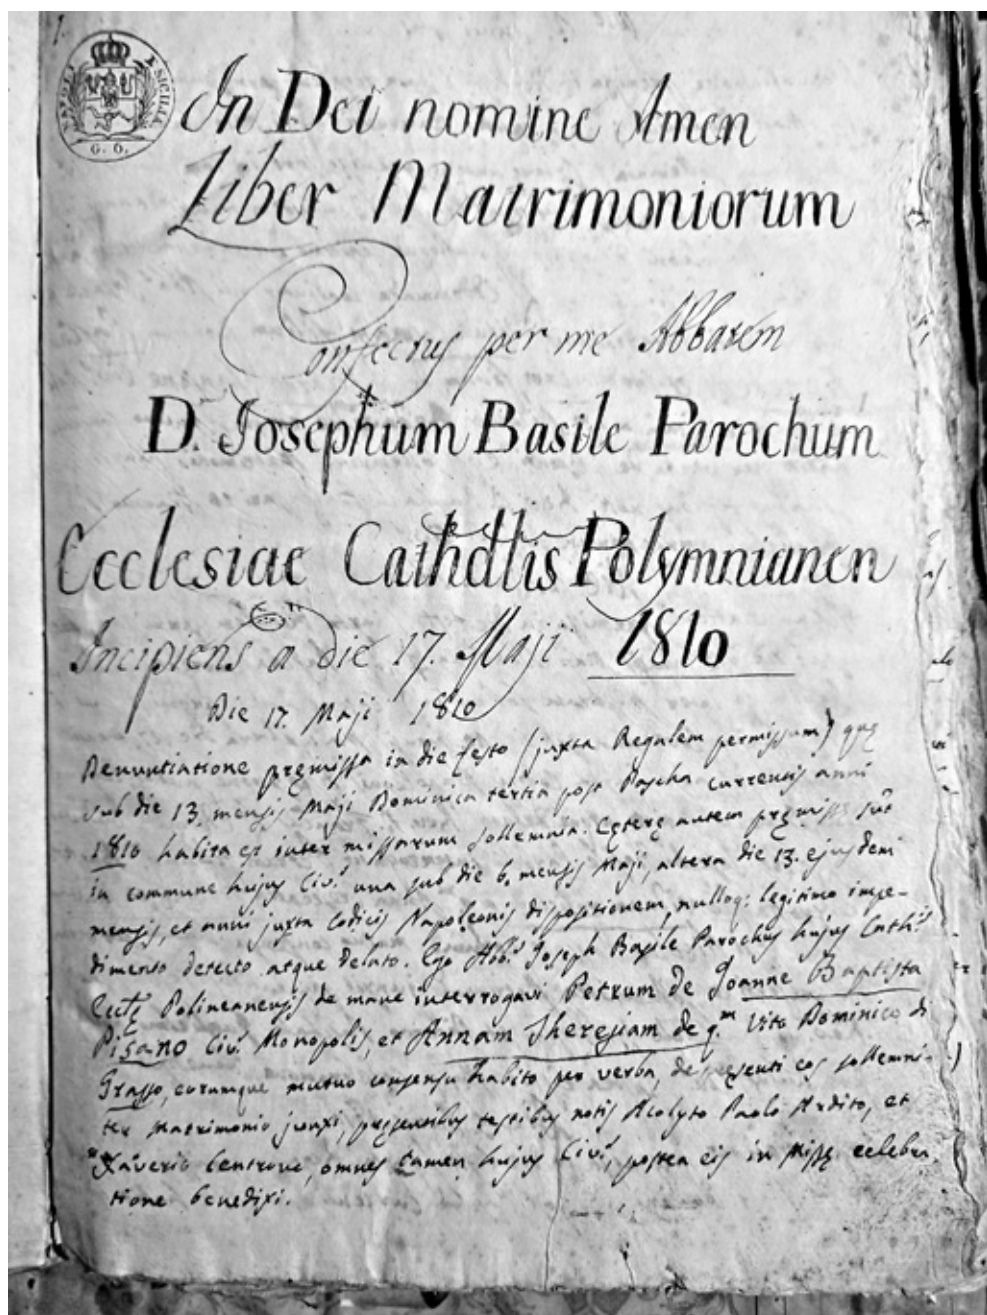 NAPOLI E SICILIA
G. O.
In Dei nomine Amen
Liber Matrimoniorum
Confectus per me Abbatem
D. Josephum Basile Parochum
Ecclesiae Cathdlis Polymnianen
Incipiens a die 17. Maji 1810
Die 17. Maji 1810
Denuntiatione pręmissa in die festo (juxta Regulem permissum) quę
sub die 13 mensis Maji Dominica tertia post Pascha currentis anni
1810 habita est inter missarum sollemnia. Cęterę autem pręmissę sūt
in commune hujus Civ.s una sub die 6. mensis Maji, altera die 13. ejusdem
mensis, et anni juxta Codicis Napoleonis dispositionem, nulloq: legitimo impe-
dimento detecto atque delato. Ego Abb.s Joseph Basile Parochus hujus Cath.s
Eccłę Polineanensis de mane interrogavi Petrum de Joanne Baptista
Pisano Civ.s Monopolis, et Annam Theresiam de q.m Vito Dominico di
Grasso, eorumque mutuo consensu habito per verba, de pręsenti eos sollemni-
ter Matrimonio junxi, pręsentibus testibus notis Acolyto Paolo Ardito, et
Xaverio Centrone, omnes tamen hujus Civ.s, postea eis in Missę celebra
tione benedixi.